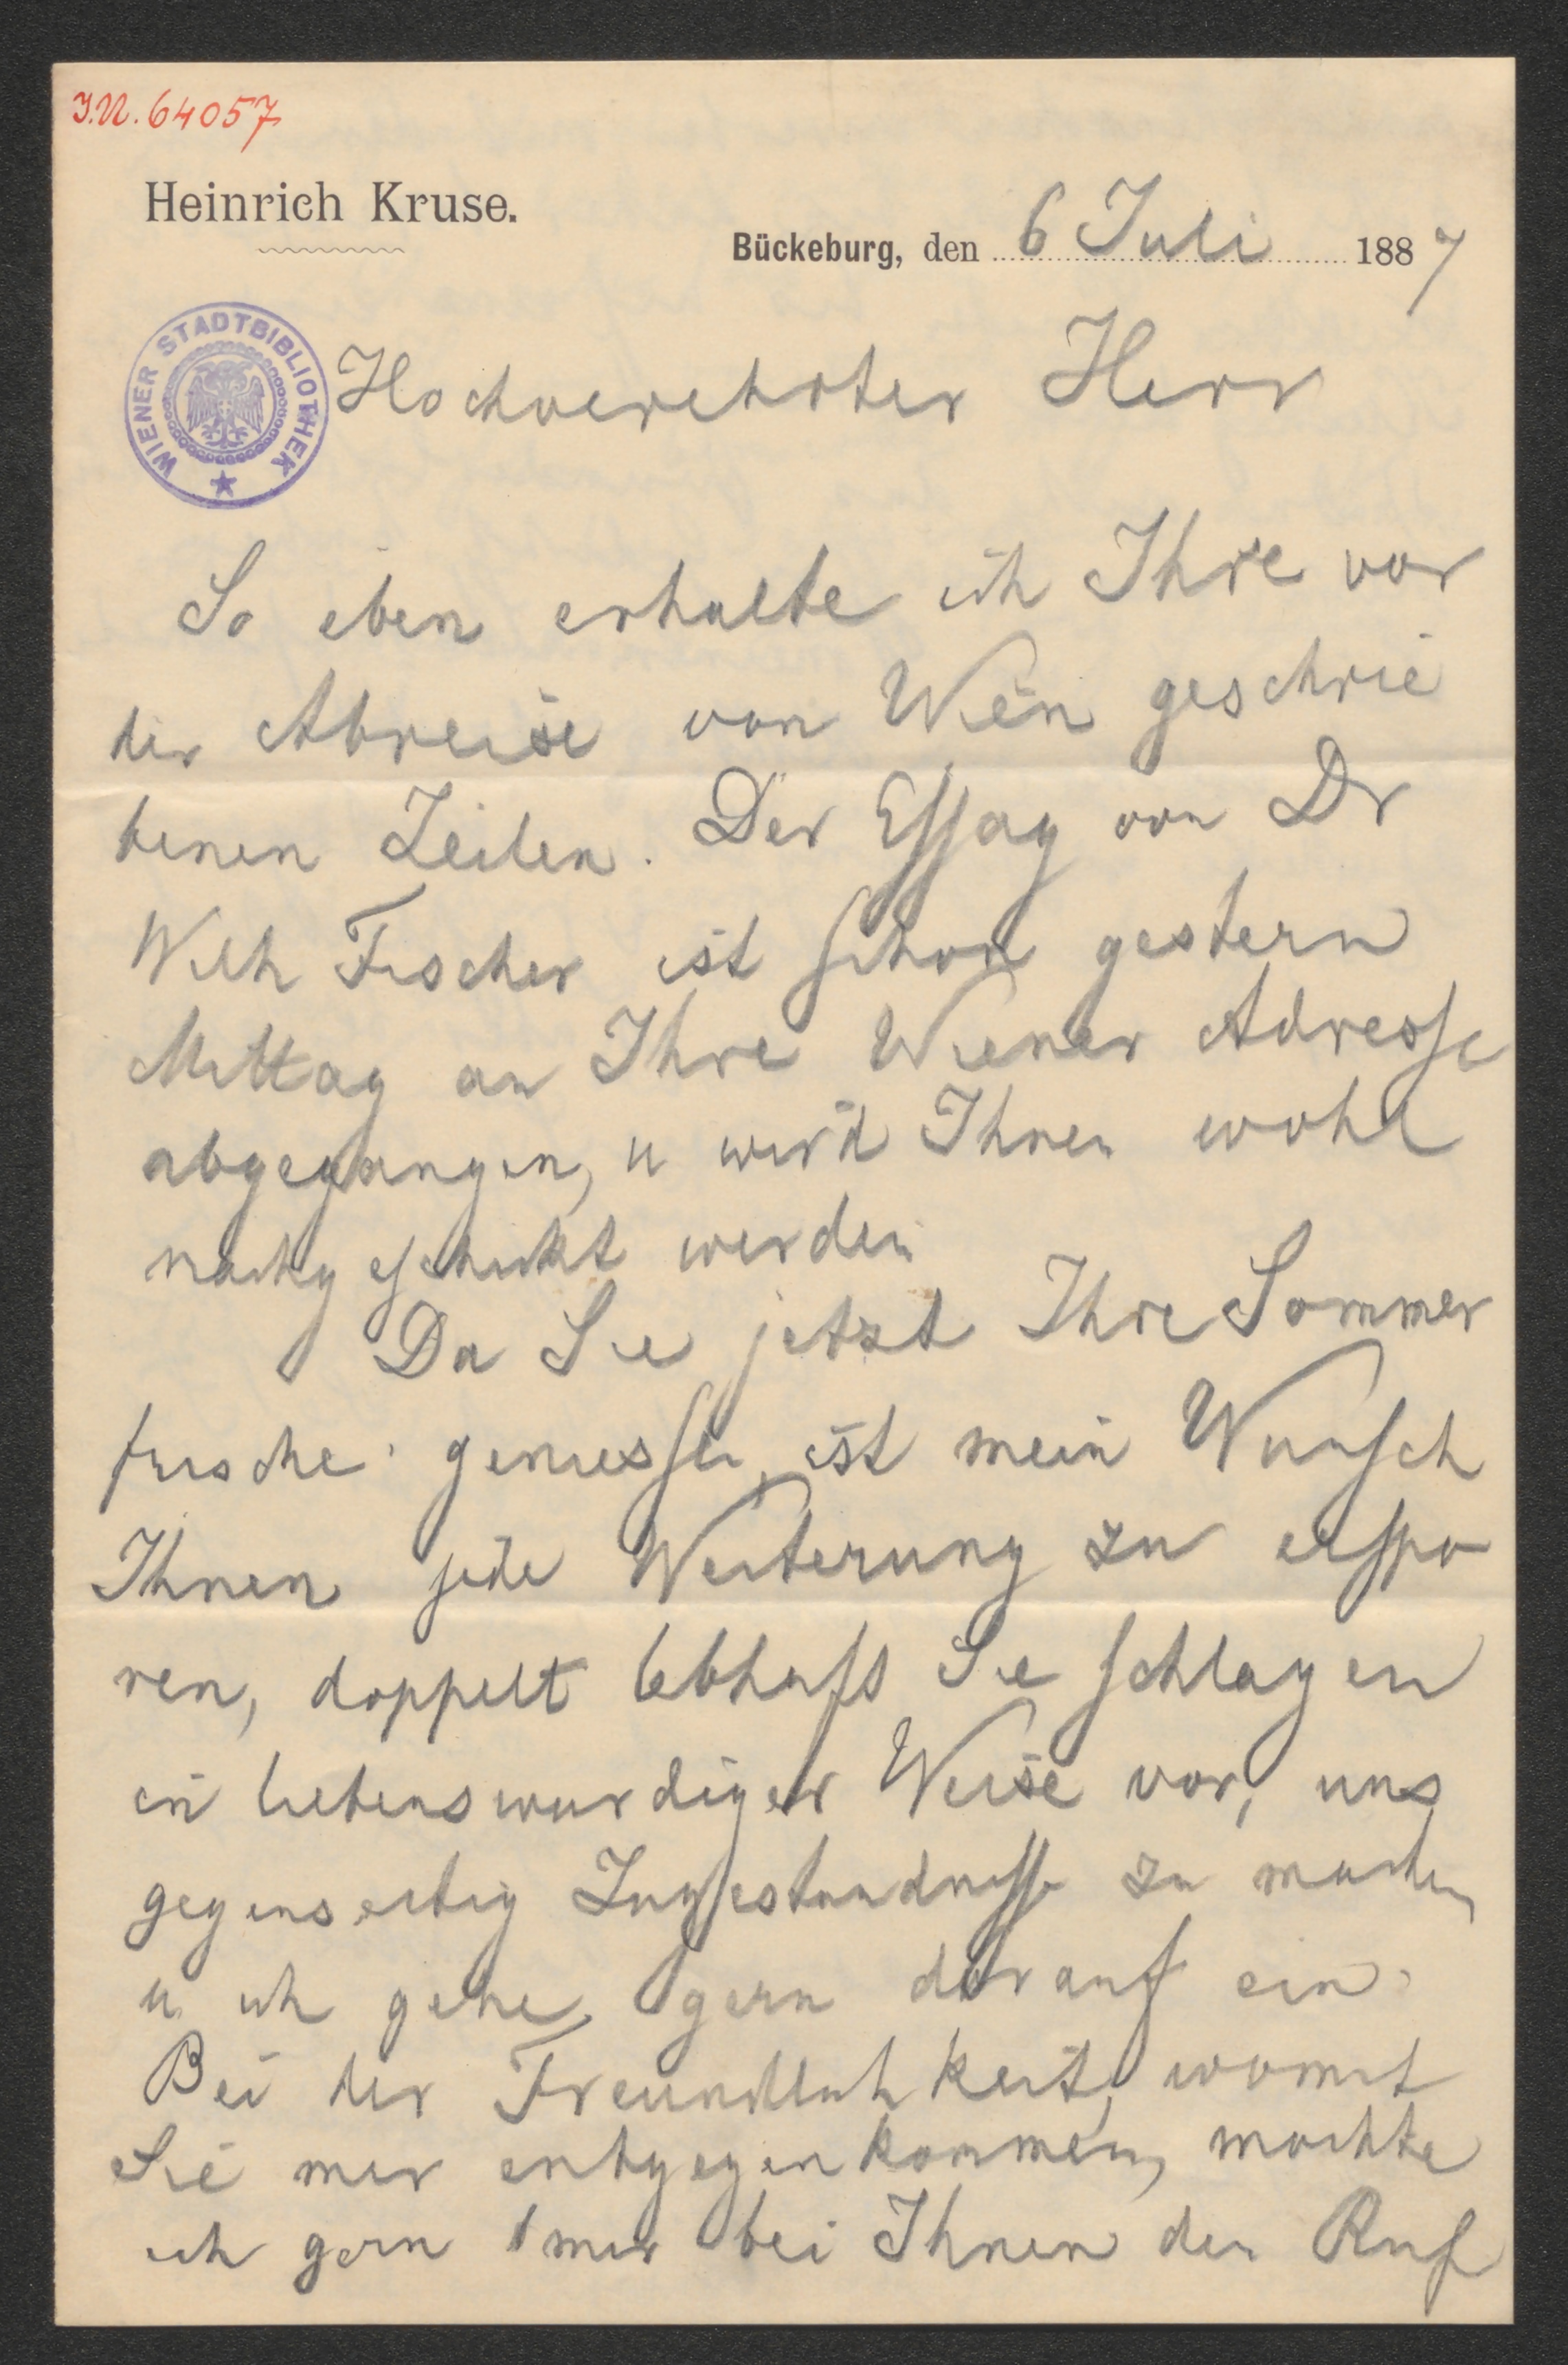 I.N. 64057
Heinrich Kruse.
Bückeburg, den 6 Juli 1887
WIENER STADTBIBLIOTHEK
Hochverehrter Herr
So eben erhalte ich Ihre vor
der Abreise von Wien geschrie
benen Zeilen. Der Essay von Dr
Wilh Fischer ist schon gestern
Mittag an Ihre Wiener Adresse
abgegangen, u wird Ihnen wohl
nachgeschickt werden
Da Sie jetzt Ihre Sommer
frische geniessen, ist mein Wunsch
Ihnen jede Weiterung zu erspa
ren, doppelt lebhaft Sie schlagen
in liebenswurdiger Weise vor, uns
gegenseitig Zugestandnisse zu machen
u ich gehe gern darauf ein.
Bei der Freundlichkeit, womit
Sie mir entgegenkommen, mochte
ich gern mir bei Ihnen den Ruf